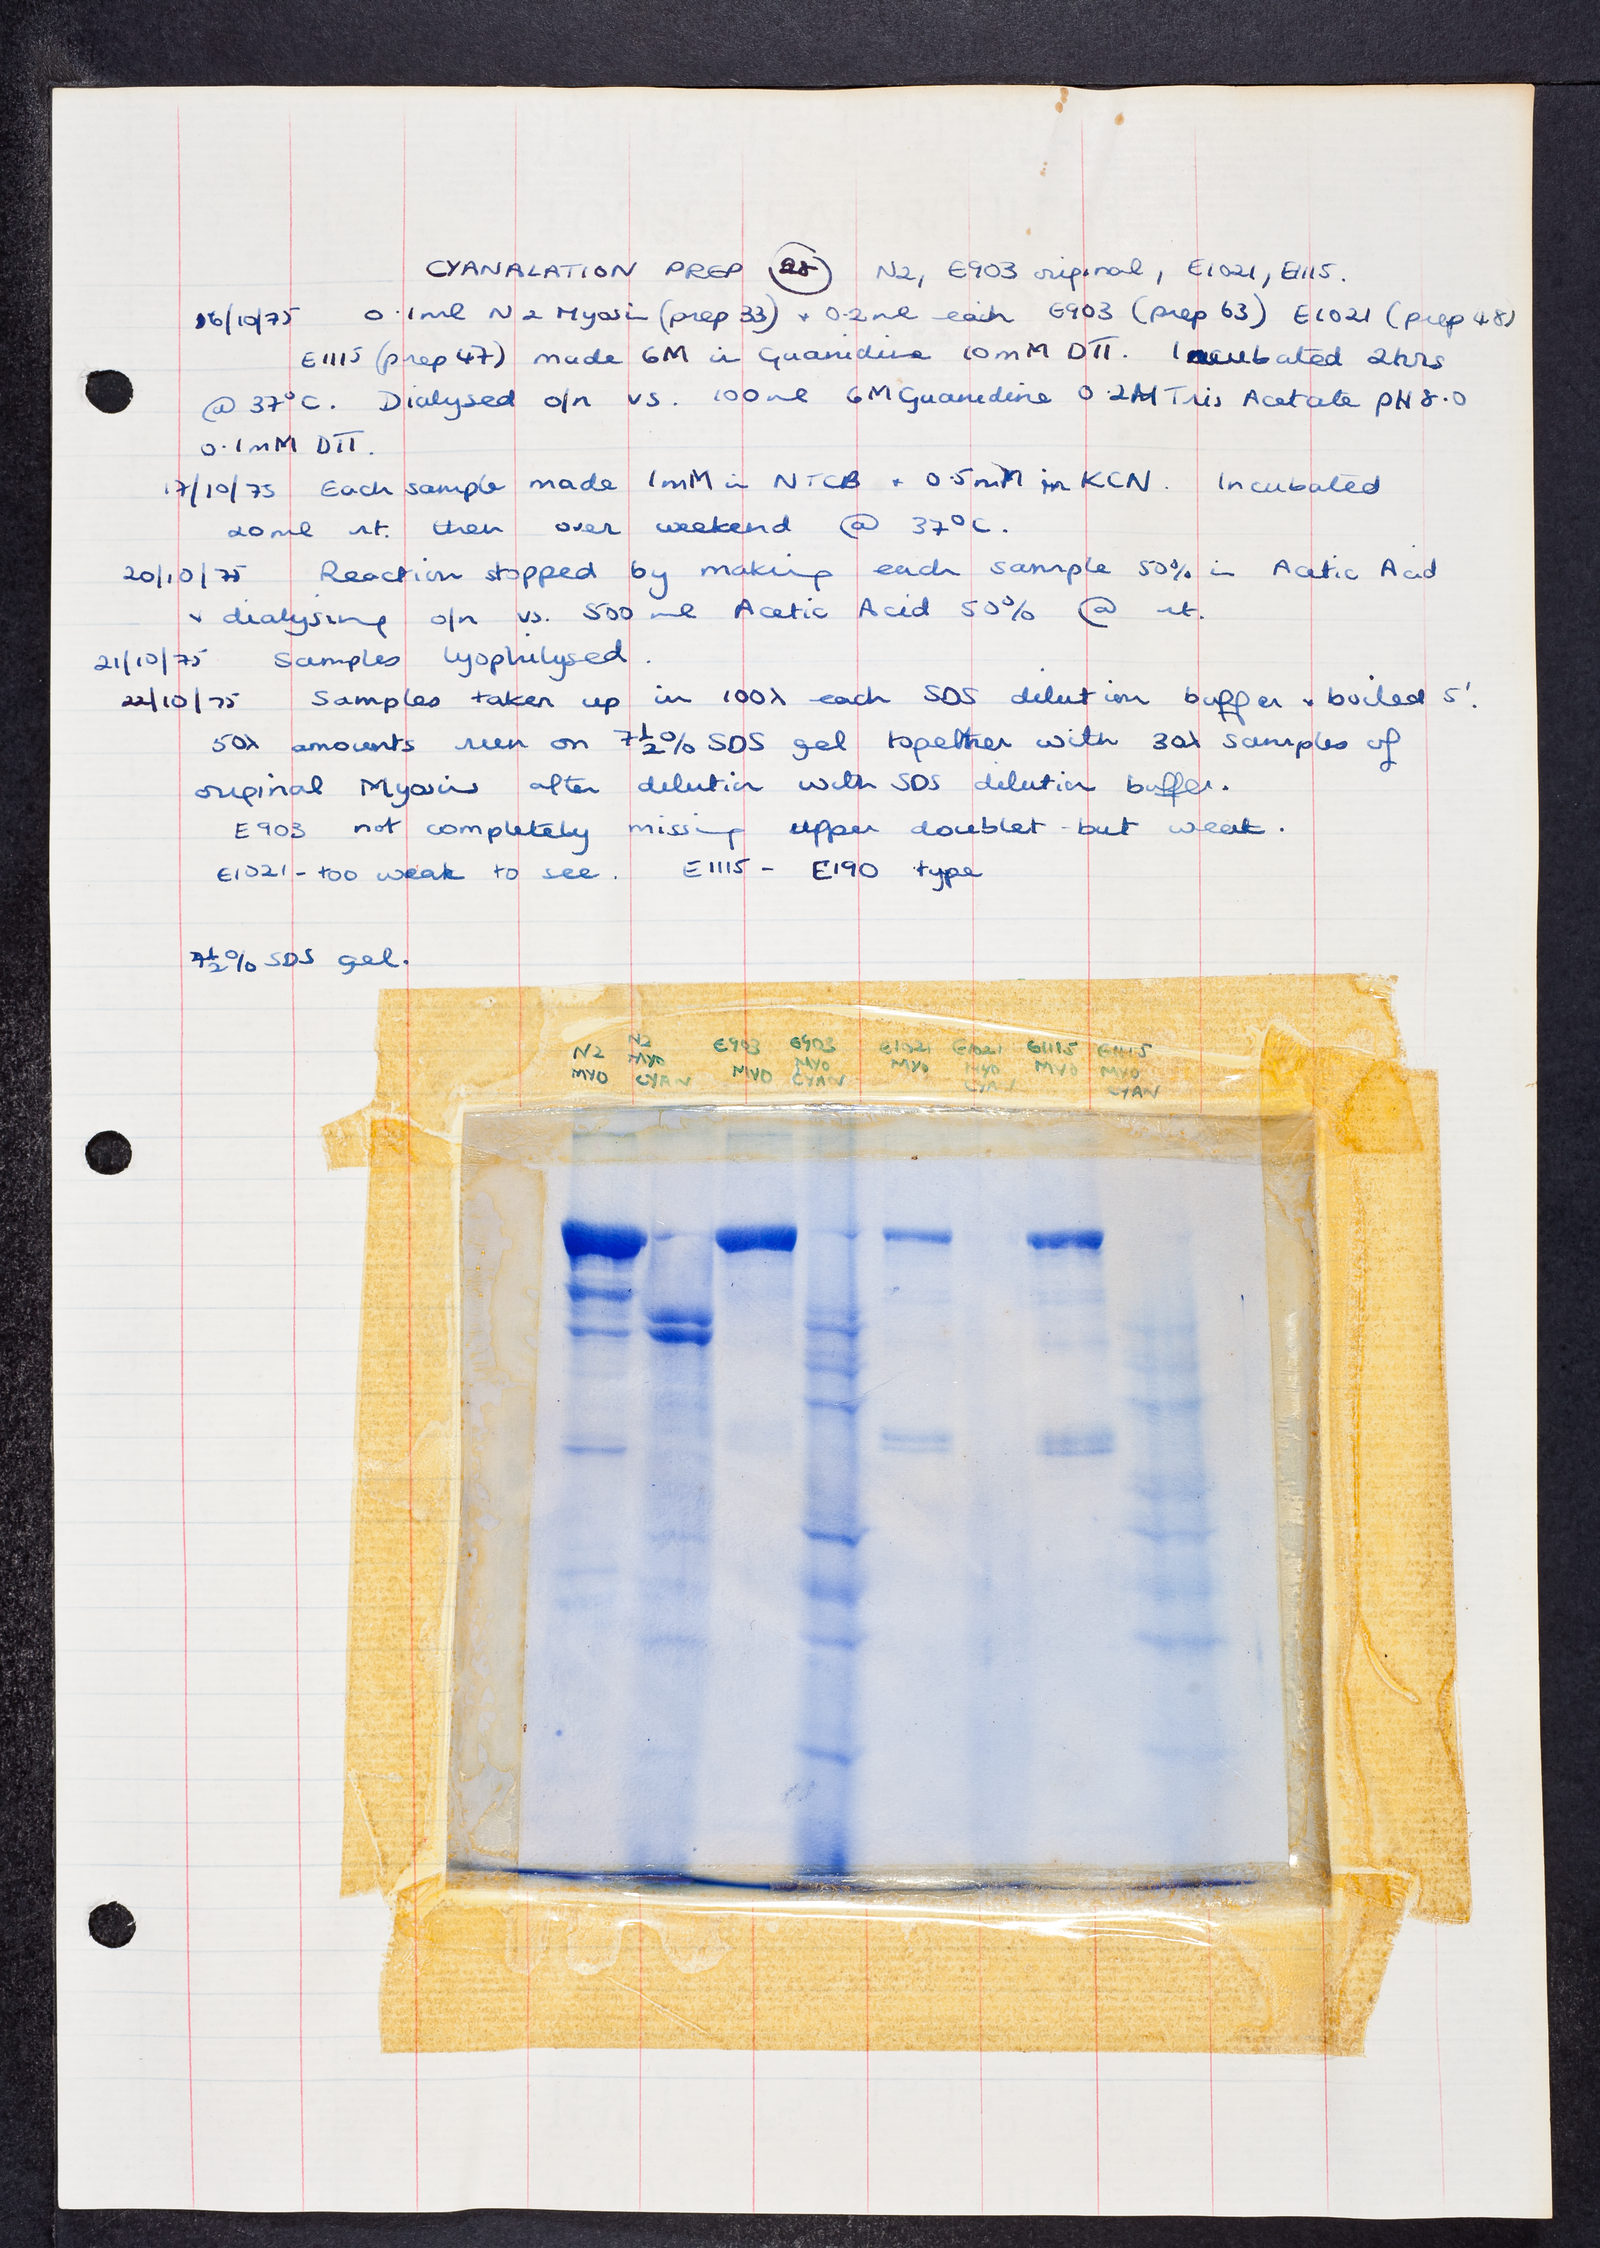 CYANALATION PREP 28 N2, E903 original, E1021, E1115.
16/10/75 0.1ml N2 Myosin (prep 33) + 0.2ml each E903 (prep 63) E1021 (prep 48)
E1115 (prep 47) made 6M in Guanidine 10mM DTT. Incubated 2hrs
@ 37°C. Dialysed o/n vs. 100ml 6M Guanidine 0.2M Tris Acetate pH 8.0
0.1mM DTT.
17/10/75 Each sample made 1mM in NTCB + 0.5mM in KCN. Incubated
20ml rt. then over weekend @ 37°C.
20/10/75 Reaction stopped by making each sample 50% in Acetic Acid
+ dialysing o/n vs. 500 ml Acetic Acid 50% @ rt.
21/10/75 Samples lyophilysed.
22/10/75 Samples taken up in 100λ each SDS dilution buffer + boiled 5'.
50λ amounts run on 7½% SDS gel together with 30λ samples of
original Myosins after dilution with SDS dilution buffer.
E903 not completely missing upper doublet - but weak.
E1021 - too weak to see. E1115 - E190 type
7½% SDS gel.
N2 MYO
N2 MYO CYAN
E903 MYO
E903 MYO CYAN
E1021 MYO
E1021 MYO CYAN
E1115 MYO
E1115 MYO CYAN